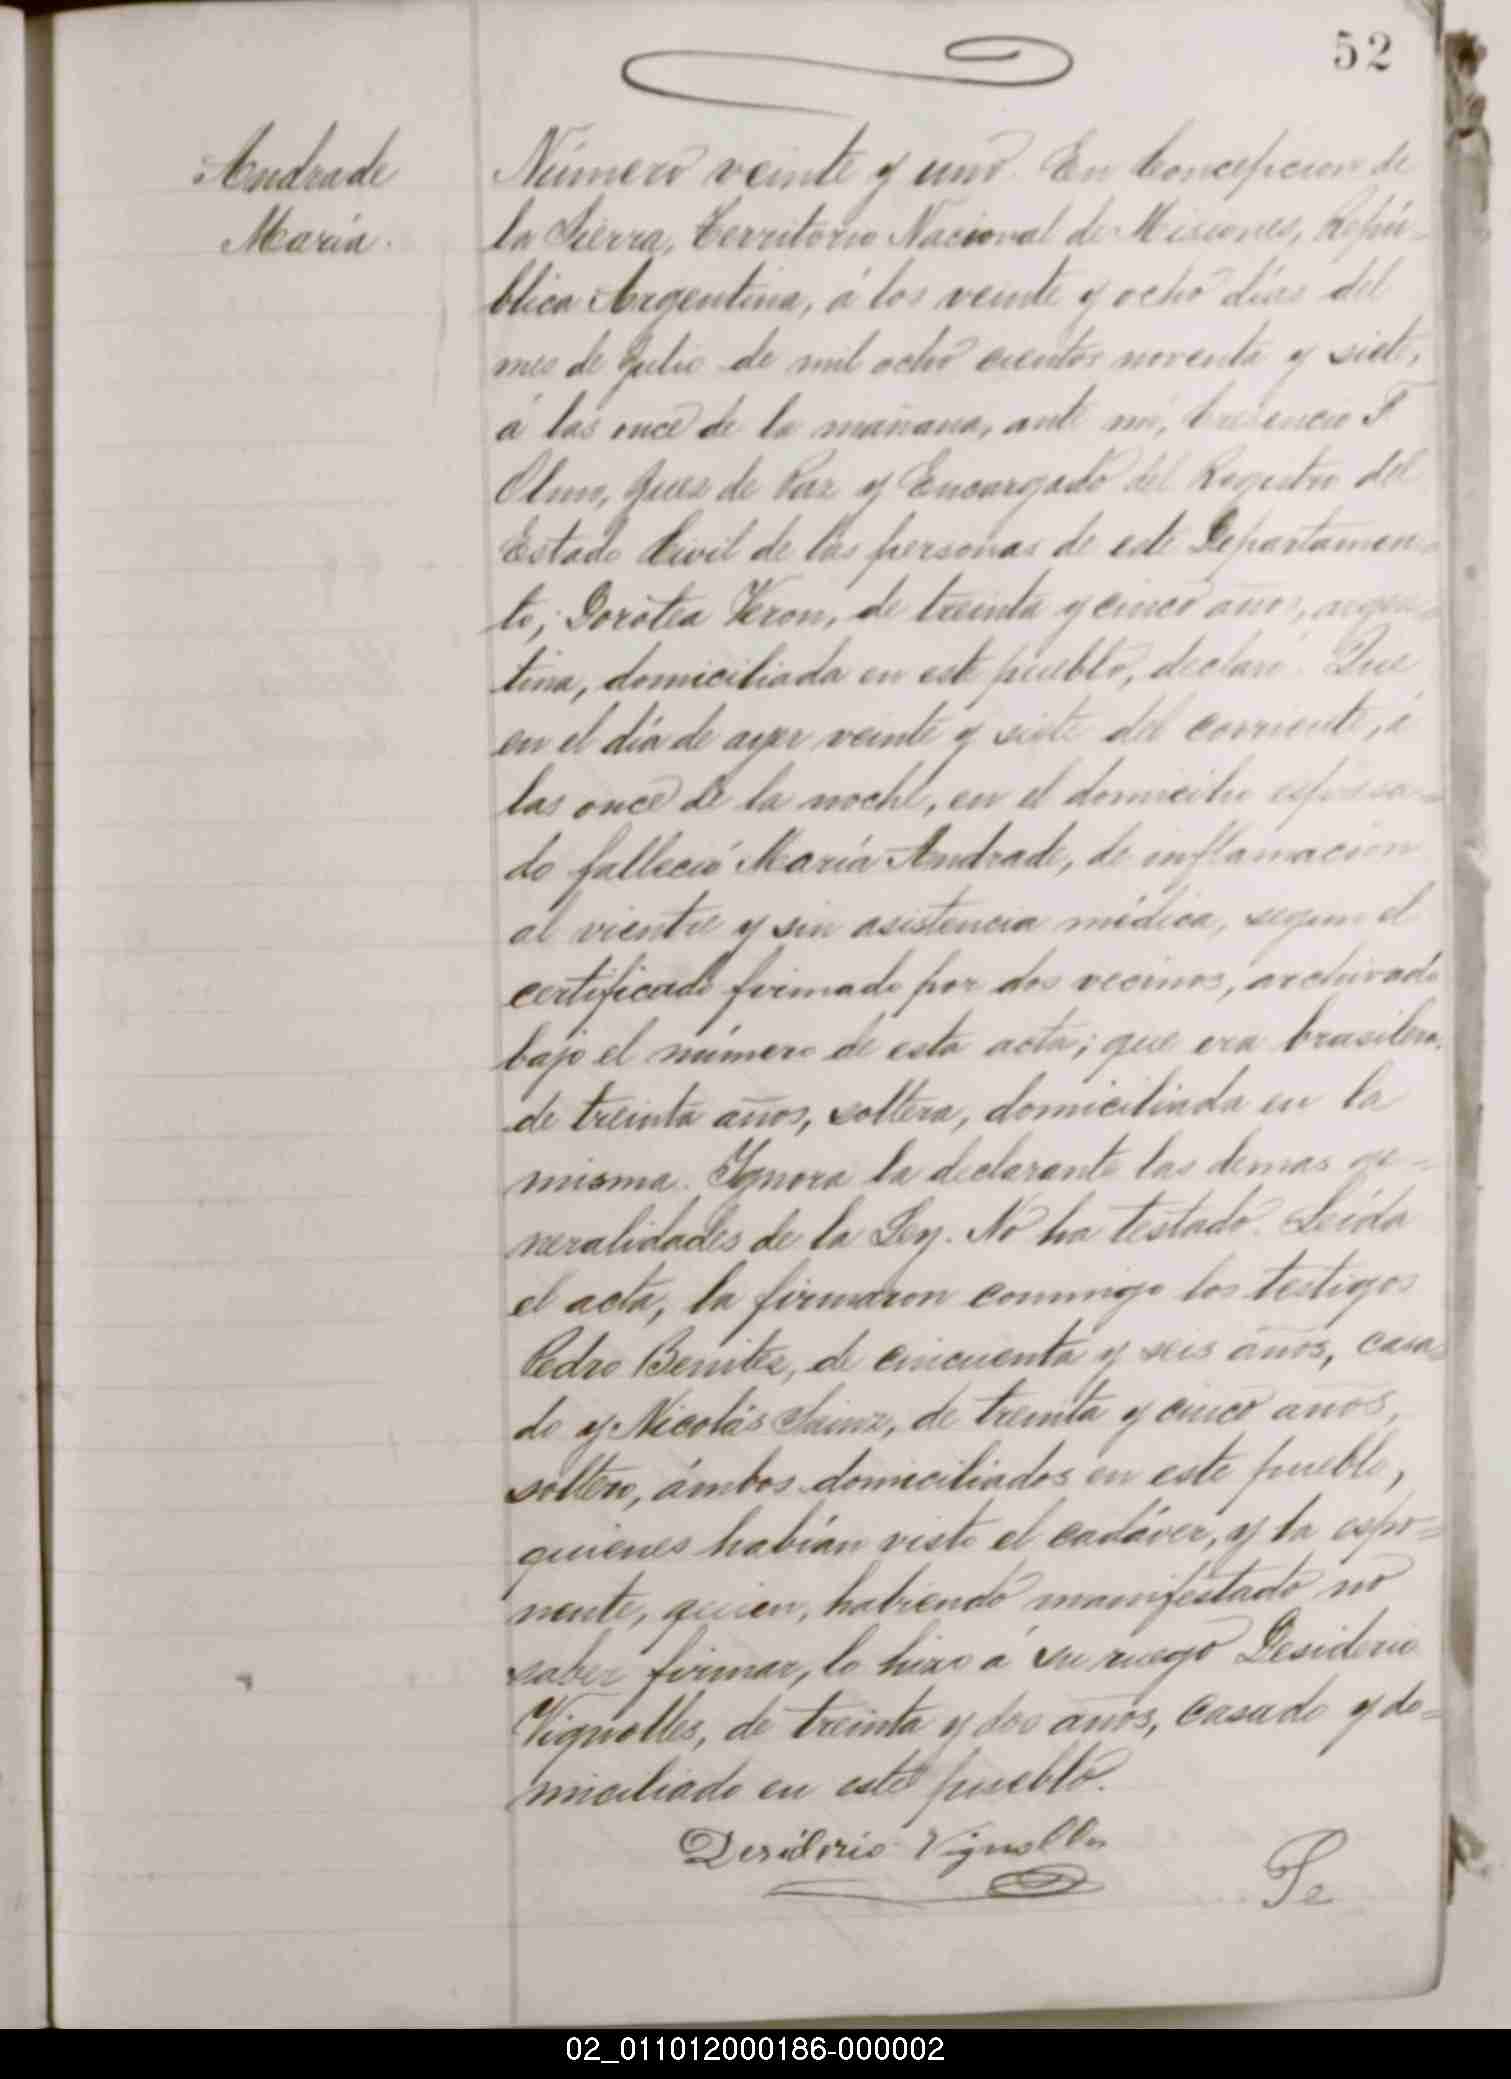 52
Andrade
María.
Número veinte y uno. En Concepcion de
la Sierra, Territorio Nacional de Misiones, Repú-
blica Argentina, á los veinte y ocho días del
mes de Julio de mil ocho cientos noventa y siete,
á las once de la mañana, ante mí, Cresencio F.
Olmo, Juez de Paz y Encargado del Registro del
Estado Civil de las personas de este Departamen-
to; Dorotea Veron, de treinta y cinco años, argen-
tina, domiciliada en este pueblo, declaró: Que
en el día de ayer veinte y siete del corriente, á
las once de la noche, en el domicilio espresa-
do falleció María Andrade, de inflamación
al vientre y sin asistencia médica, segun el
certificado firmado por dos vecinos, archivado
bajo el número de esta acta; que era brasilera,
de treinta años, soltera, domiciliada en la
misma. Ignora la declarante las demas ge-
neralidades de la Ley. No ha testado. Leída
el acta, la firmaron conmigo los testigos
Pedro Benitez, de cincuenta y seis años, casa-
do y Nicolás Sainz, de treinta y cinco años,
soltero, ámbos domiciliados en este pueblo,
quienes habían visto el cadáver, y la espo-
nente, quien, habiendo manifestado no
saber firmar, lo hizo á su ruego Desiderio
Vignolles, de treinta y dos años, casado y do-
miciliado en este pueblo.
Desiderio Vignolles
Pe
02_011012000186-000002